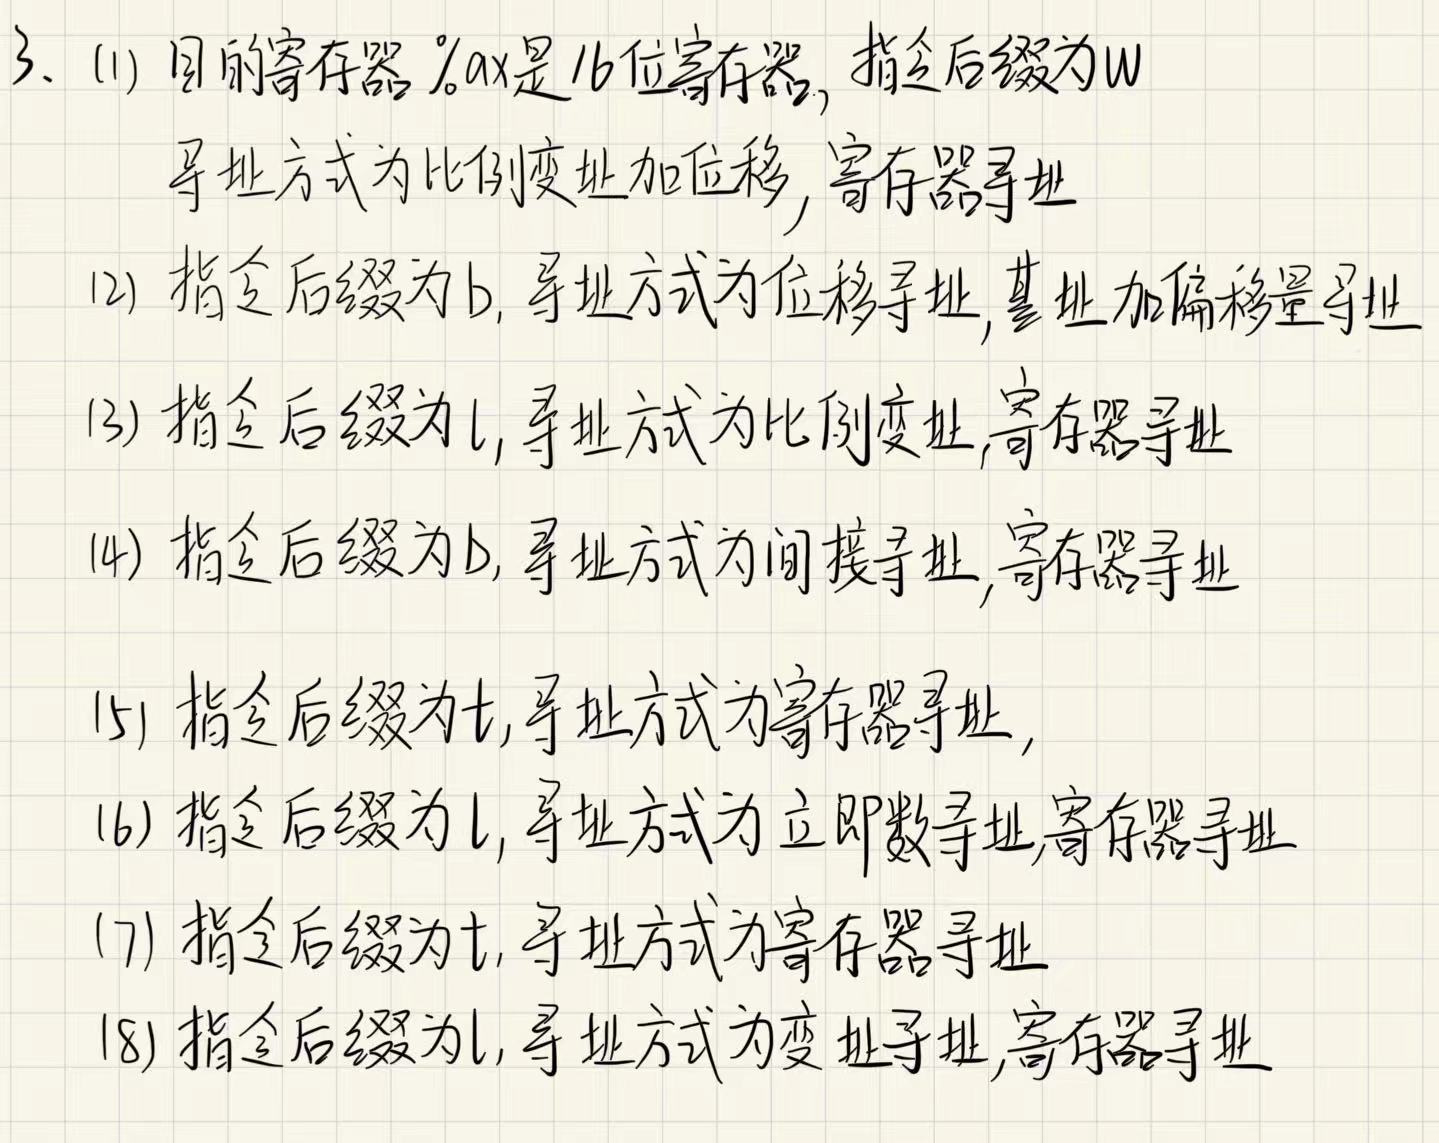 3、(1) 目的寄存器%ax是16位寄存器,指令后缀为w
寻址方式为比例变址加位移,寄存器寻址
(2) 指令后缀为b,寻址方式为位移寻址,基址加偏移量寻址
(3) 指令后缀为l,寻址方式为比例变址,寄存器寻址
(4) 指令后缀为b,寻址方式为间接寻址,寄存器寻址
(5) 指令后缀为t,寻址方式为寄存器寻址,
(6) 指令后缀为l,寻址方式为立即数寻址,寄存器寻址
(7) 指令后缀为t,寻址方式为寄存器寻址
(8) 指令后缀为l,寻址方式为变址寻址,寄存器寻址